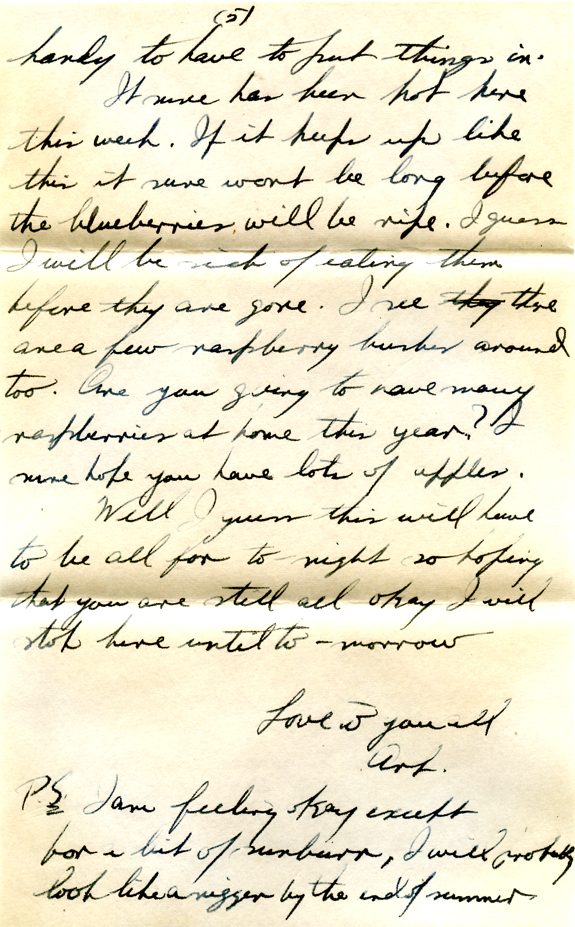 (5)
handy to have to put things in.
It sure has been hot here
this week. If it keeps up like
this it sure wont be long before
the blueberries will be ripe. I guess
I will be sick of eating them
before they are gone. I see they there
are a few raspberry bushes around
too. Are you going to have many
raspberries at home this year? I
sure hope you have lots of apples.
Well I guess this will have
to be all for to-night so hoping
that you are still all okay I will
stop here until to-morrow
Love to you all
Art.
P.S. I am feeling okay except
for a bit of sunburn, I will probably
look like a nigger by the end of summer